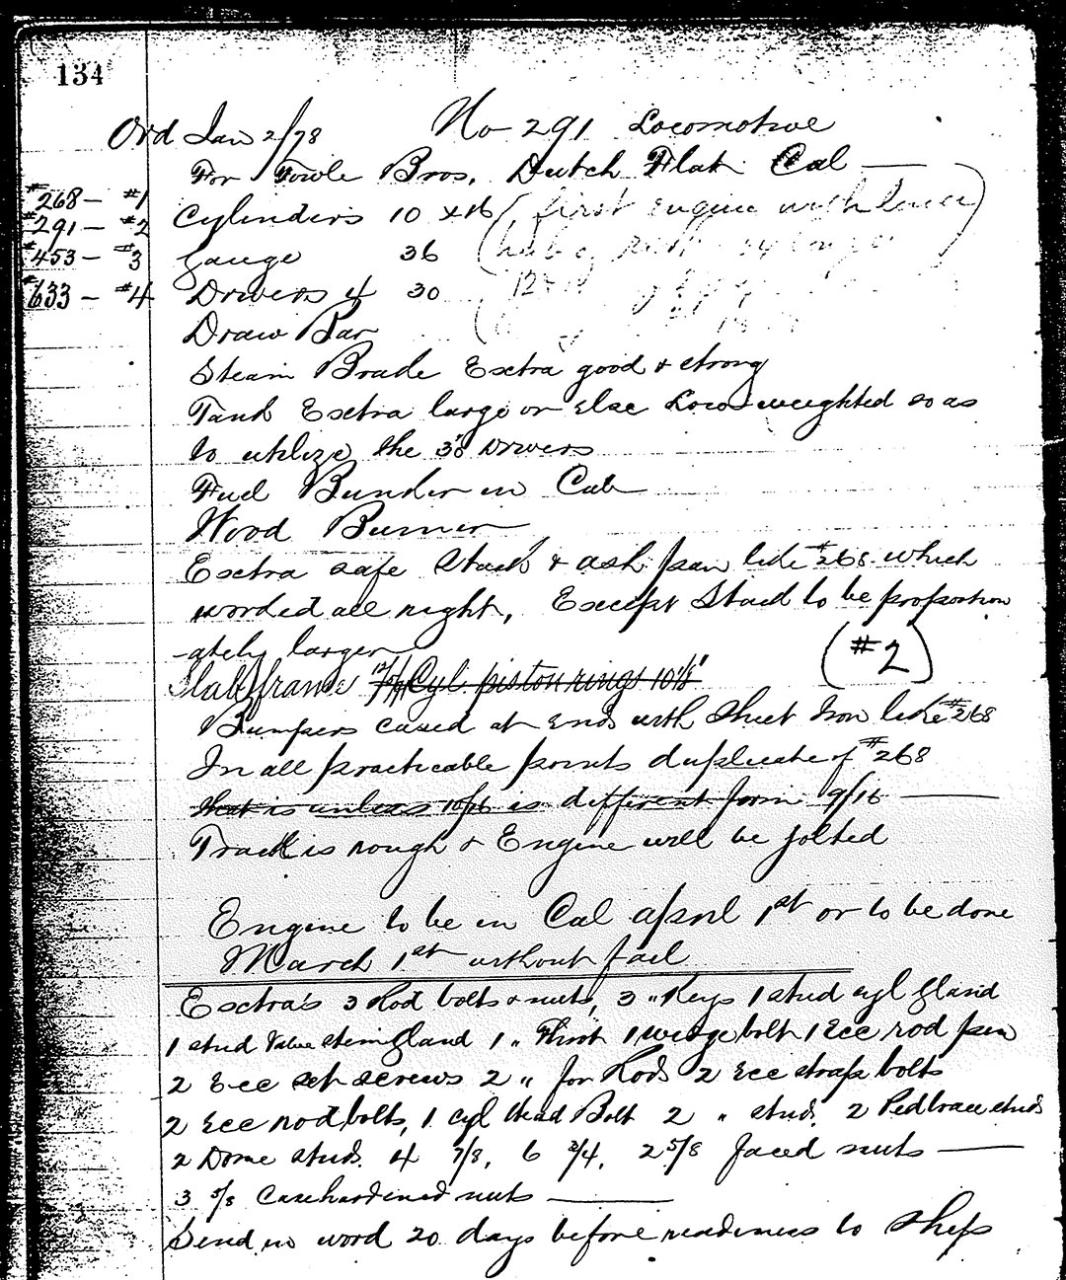 134
Ord Jan 2/78 No 291 Locomotive
For Towle Bros. Dutch Flat Cal
#268 - #1
#291 - #2
#453 - #3
#633 - #4
Cylinders 10 x 16 (first engine with
Gauge 36
Drivers 4 30
Draw Bar
Steam Brake Extra good & strong
Tank Extra large or else Loco weighted so as
to utilize the 30 Drivers
Fuel Bunder in Cab
Wood Burner
Extra safe Stack & ash pan like #268 which
worked all right, Except Stack to be proportion
-ately larger
(#2)
Slab frame Cyl piston rings 10 1/8"
Bumpers cased at Ends with Sheet Iron like #268
In all practicable points duplicate of #268
that is unless 10/16 is different form 9/16
Track is rough & Engine will be jolted
Engine to be in Cal April 1st or to be done
March 1st without fail
Extra's 3 Rod bolts & nuts, 3 " Keys 1 stud cyl gland
1 stud Valve stem gland 1 " Throt 1 wedge bolt 1 Ecc rod pin
2 Ecc set screws 2 " for Rods 2 Ecc strap bolts
2 Ecc rod bolts, 1 cyl Head Bolt 2 " stud. 2 Ped brace studs
2 Dome studs. 4 7/8, 6 3/4, 2 5/8 faced nuts
3 5/8 Casehardened nuts
Send us word 20 days before readiness to Ship